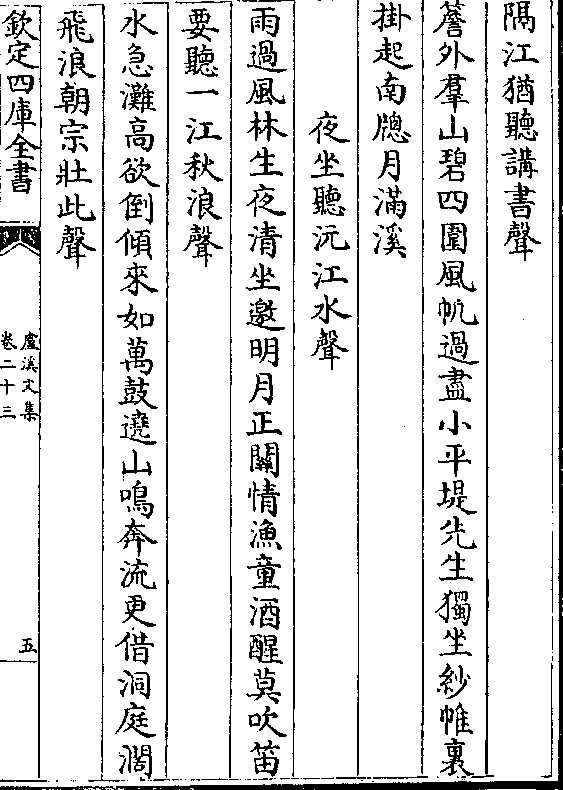 隔江猶聽講書聲
簷外羣山碧四圍風帆過盡小平堤先生獨坐紗帷裏
掛起南牕月滿溪
夜坐聽沅江水聲
雨過風林生夜清坐邀明月正關情漁童酒醒莫吹笛
要聽一江秋浪聲
水急灘高欲倒傾來如萬鼓遶山鳴奔流更借洞庭濶
飛浪朝宗壯此聲
欽定四庫全書
盧溪文集
卷二十三
五